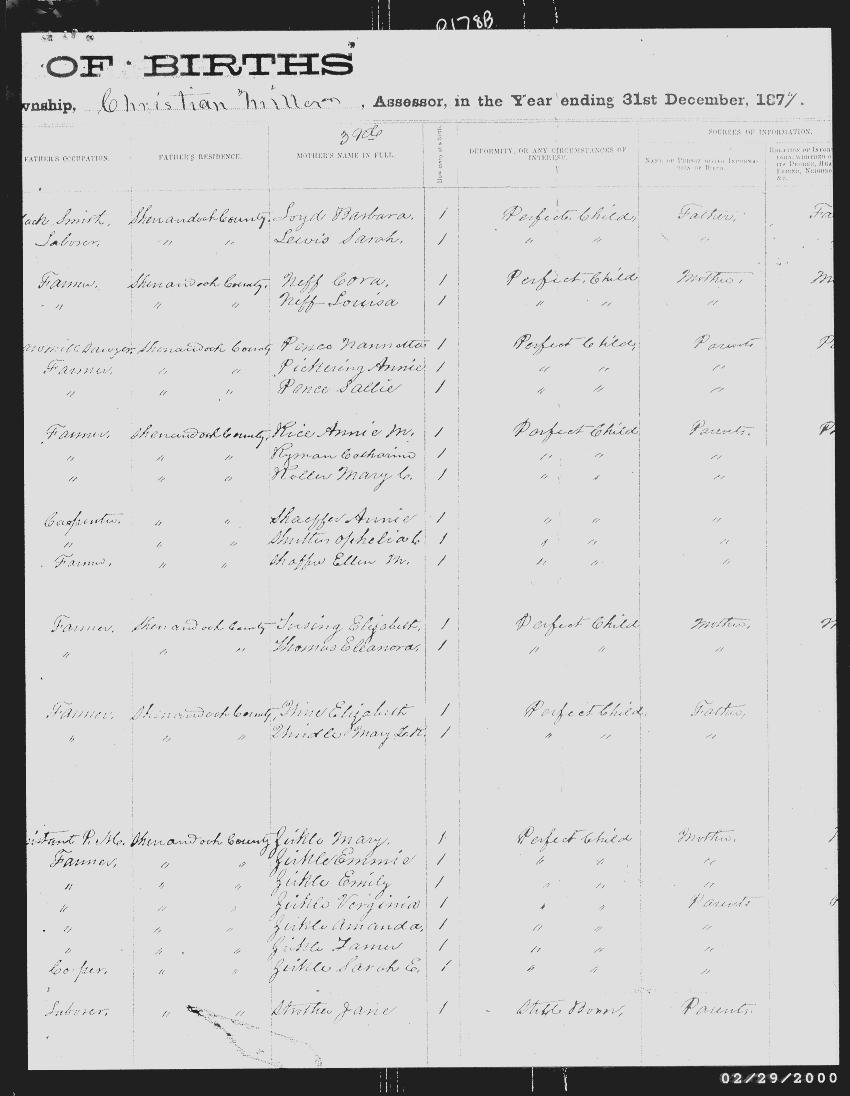 0178B
OF BIRTHS
wnship, Christian Miller, Assessor, in the Year ending 31st December, 1877.
3 rd
SOURCES OF INFORMATION.
FATHER'S OCCUPATION. FATHER'S RESIDENCE. MOTHER'S NAME IN FULL. DEFORMITY, OR ANY CIRCUMSTANCES OF INTEREST.
NAME OF PERSON GIVING INFORMATION OF BIRTH.
lack Smith. Shenandoah County. Loyd Barbara. 1 Perfect Child, Father, Fa
Laborer. " " Lewis Sarah. 1 " " "
Farmer. Shenandoah County. Neff Cora. 1 Perfect Child Mother, M
" " " Neff Louisa 1 " " "
awmill Sawyer. Shenandoah County Pence Nannetta 1 Perfect Child, Parents Pa
Farmer. " " Pickering Annie 1 " " "
" " " Pence Sallie 1 " " "
Farmer. Shenandoah County, Rice Annie M. 1 Perfect Child Parents. Pa
" " " Ryman Catharine 1 " " "
" " " Roller Mary C. 1 " " "
Carpenter. " " Shaeffer Annie 1 " " "
" " " Shutters Ophelia C 1 " " "
Farmer. " " Ellen M. 1 " " "
Farmer. Shenandoah County Elizabeth. 1 Perfect Child Mother, M
" " " Thomas Eleanora. 1 " " "
Farmer. Shenandoah County, Wine Elizabeth 1 Perfect Child. Father,
" " " Mary 1 " " "
istant P. M. Shenandoah County Zirkle Mary. 1 Perfect Child Mother.
Farmer. " " Zirkle Emmie 1 " " "
" " " Zirkle Emily 1 " " "
" " " Zirkle Virginia 1 " " Parents
" " " Zirkle Amanda. 1 " " "
" " " Zirkle 1 " " "
Cooper. " " Zirkle Sarah E. 1 " " "
Laborer. " " Strother Jane 1 Still Born. Parents.
02/29/2000